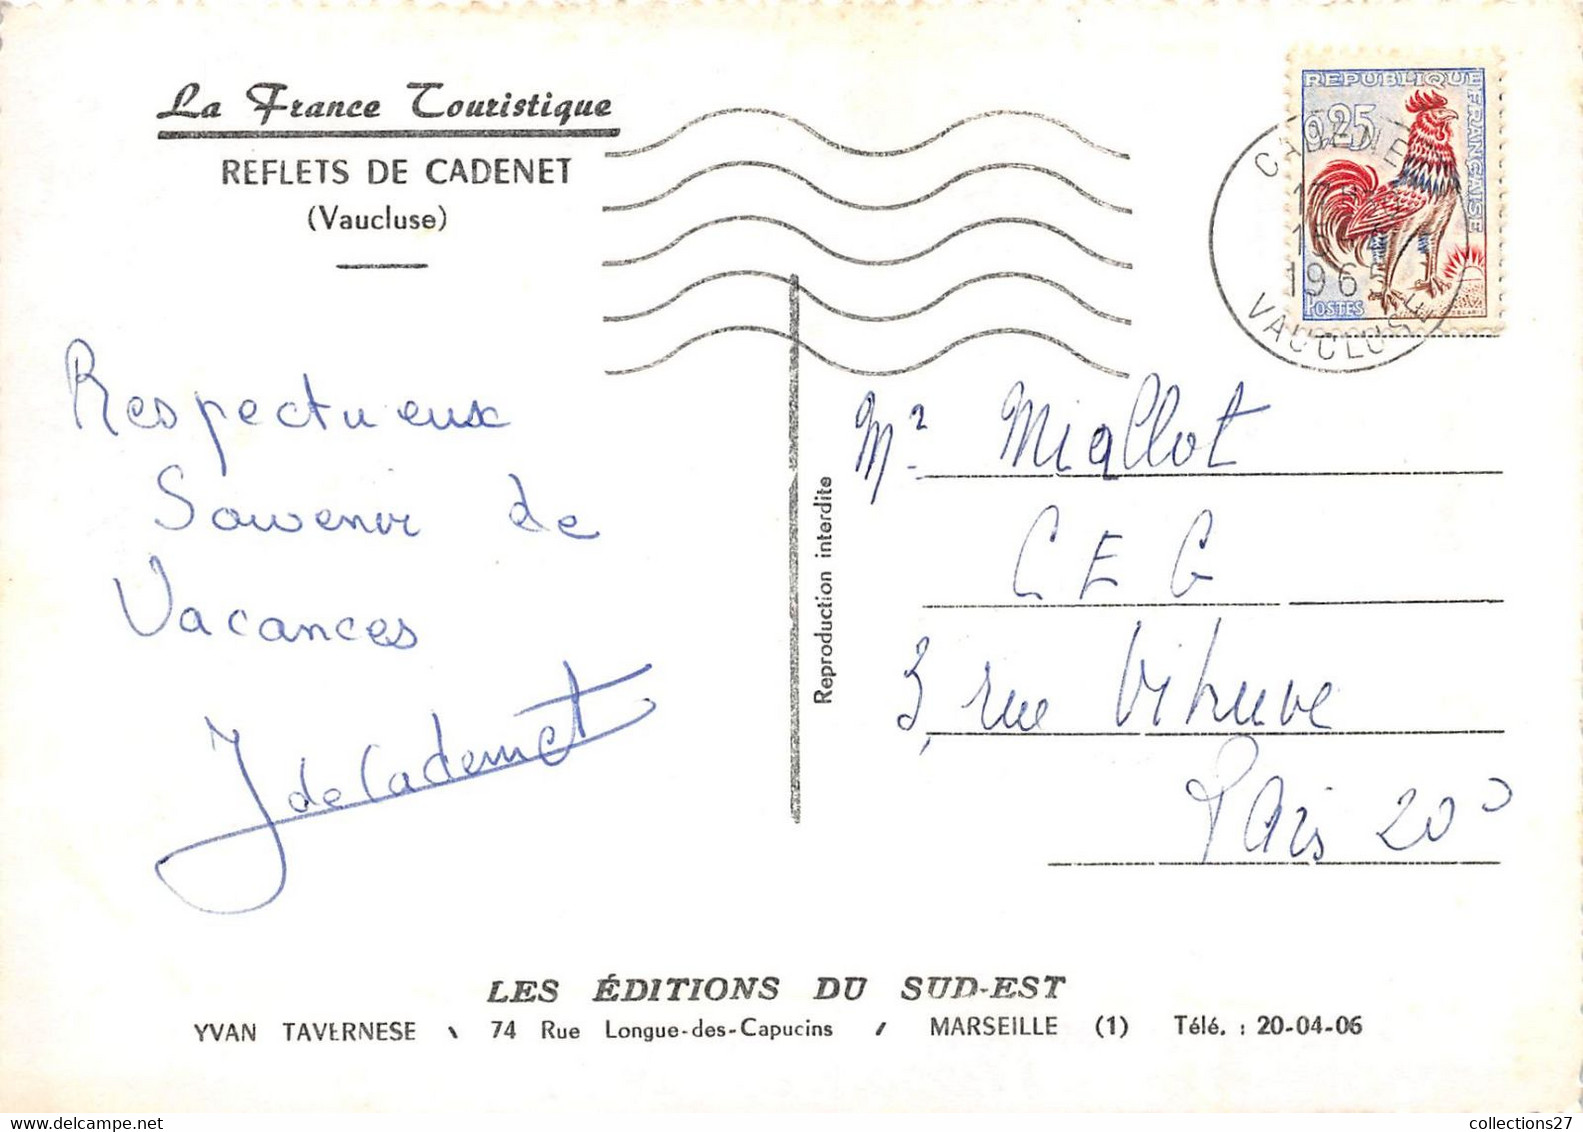 La France Touristique
REFLETS DE CADENET
(Vaucluse)
REPUBLIQUE FRANÇAISE
0,25
POSTES
CADENET
15-4
1965
VAUCLUSE
Respectueux
Souvenir de
Vacances
J de Cademet
Reproduction interdite
Mr Miallot
C E G
3, rue Vitruve
Paris 20e
LES ÉDITIONS DU SUD-EST
YVAN TAVERNESE \ 74 Rue Longue-des-Capucins / MARSEILLE (1) Télé. : 20-04-06
collections27